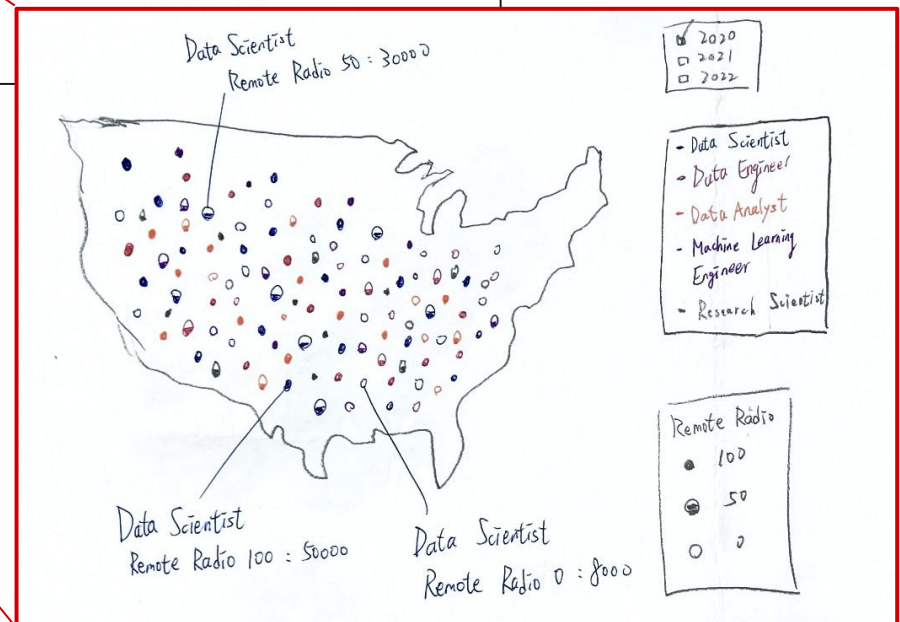 Data Scientist
Remote Radio 50 : 30000
2020
2021
2022
- Data Scientist
- Data Engineer
- Data Analyst
- Machine Learning
Engineer
- Research Scientist
Remote Radio
100
50
0
Data Scientist
Remote Radio 100 : 50000
Data Scientist
Remote Radio 0 : 8000